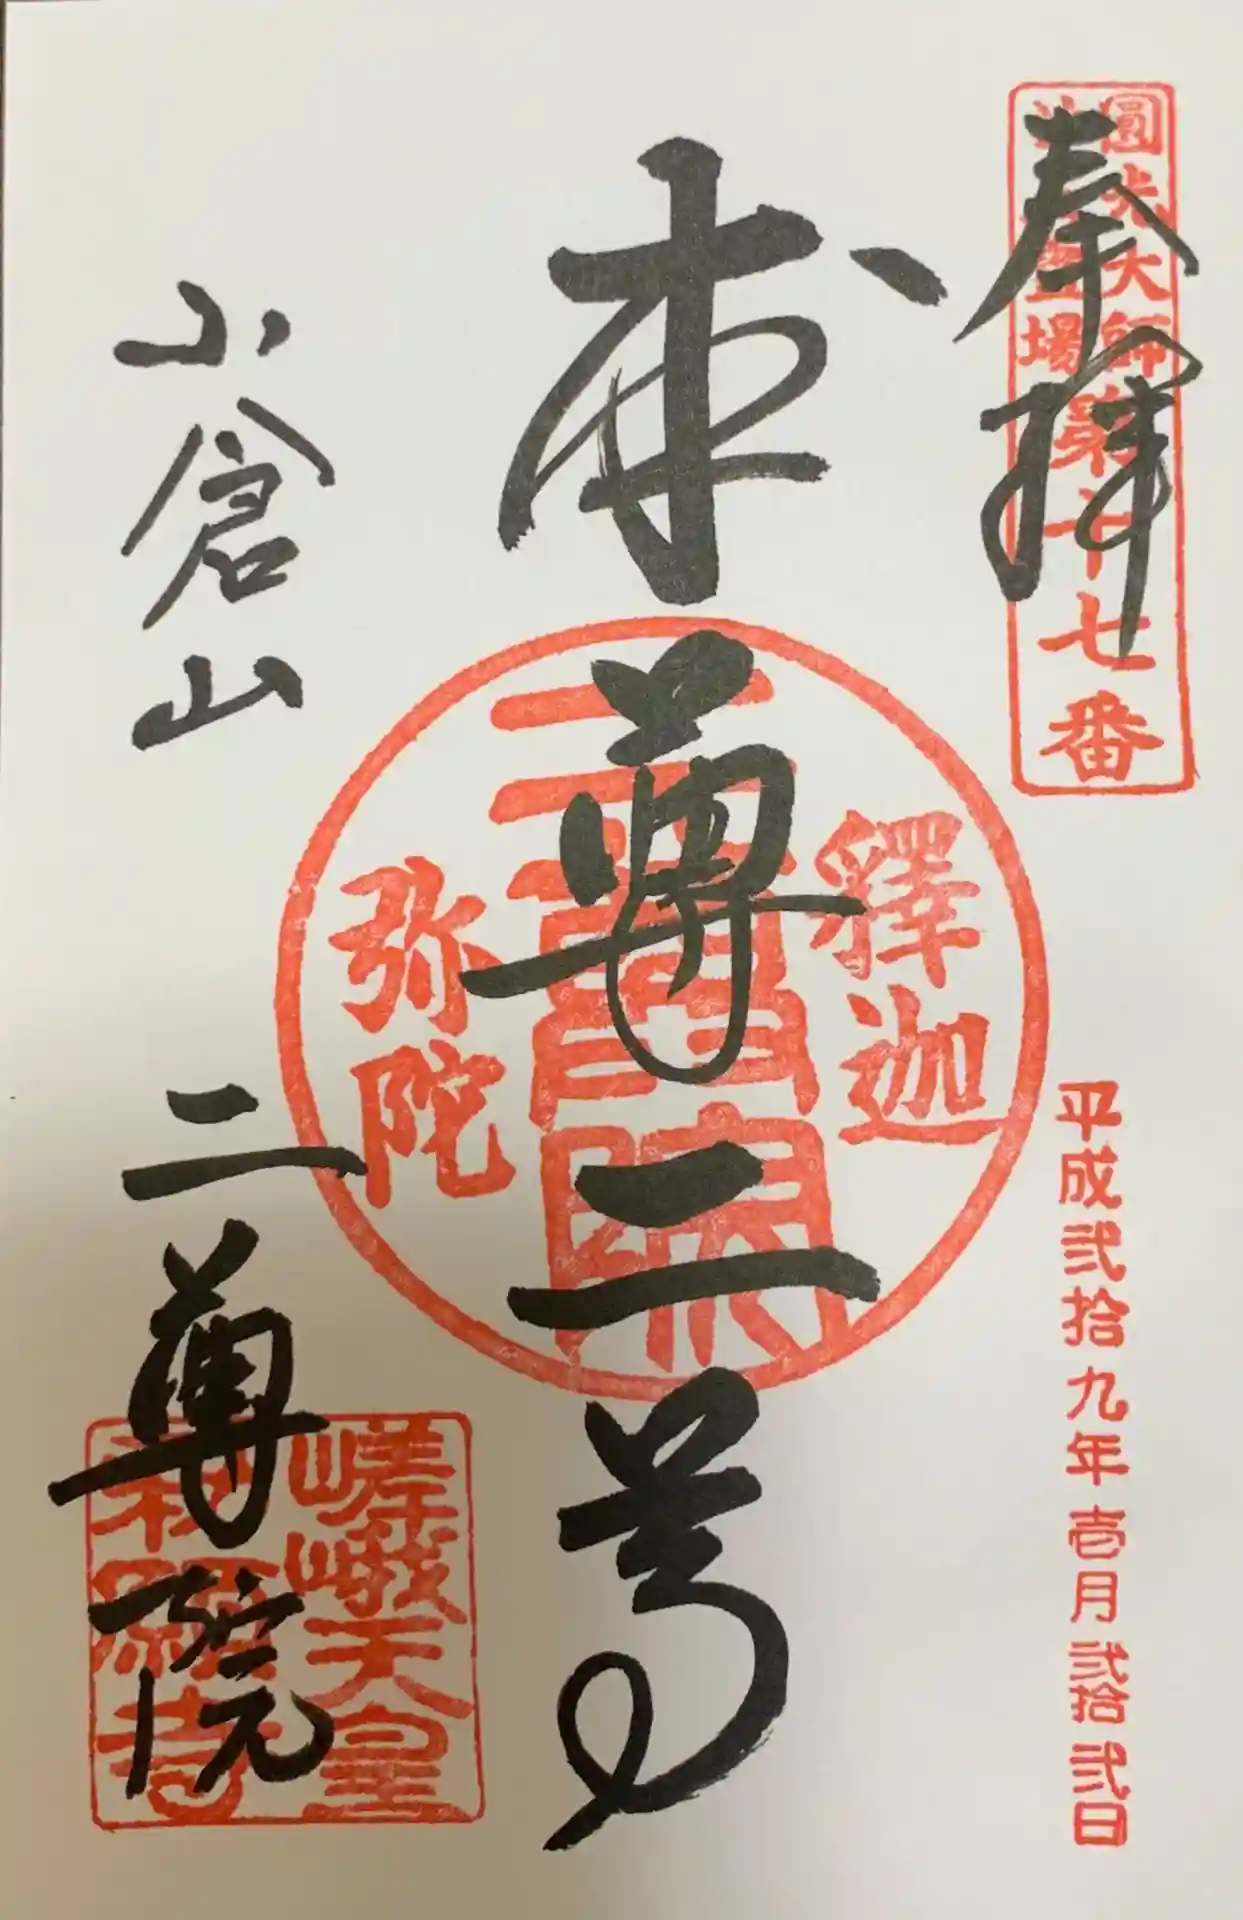 奉拝
圓光大師
霊場
第十七番
平成弐拾九年壱月弐拾弐日
本尊二尊
釋迦
二尊院
弥陀
小倉山
二尊院
嵯峨天皇
勅願寺